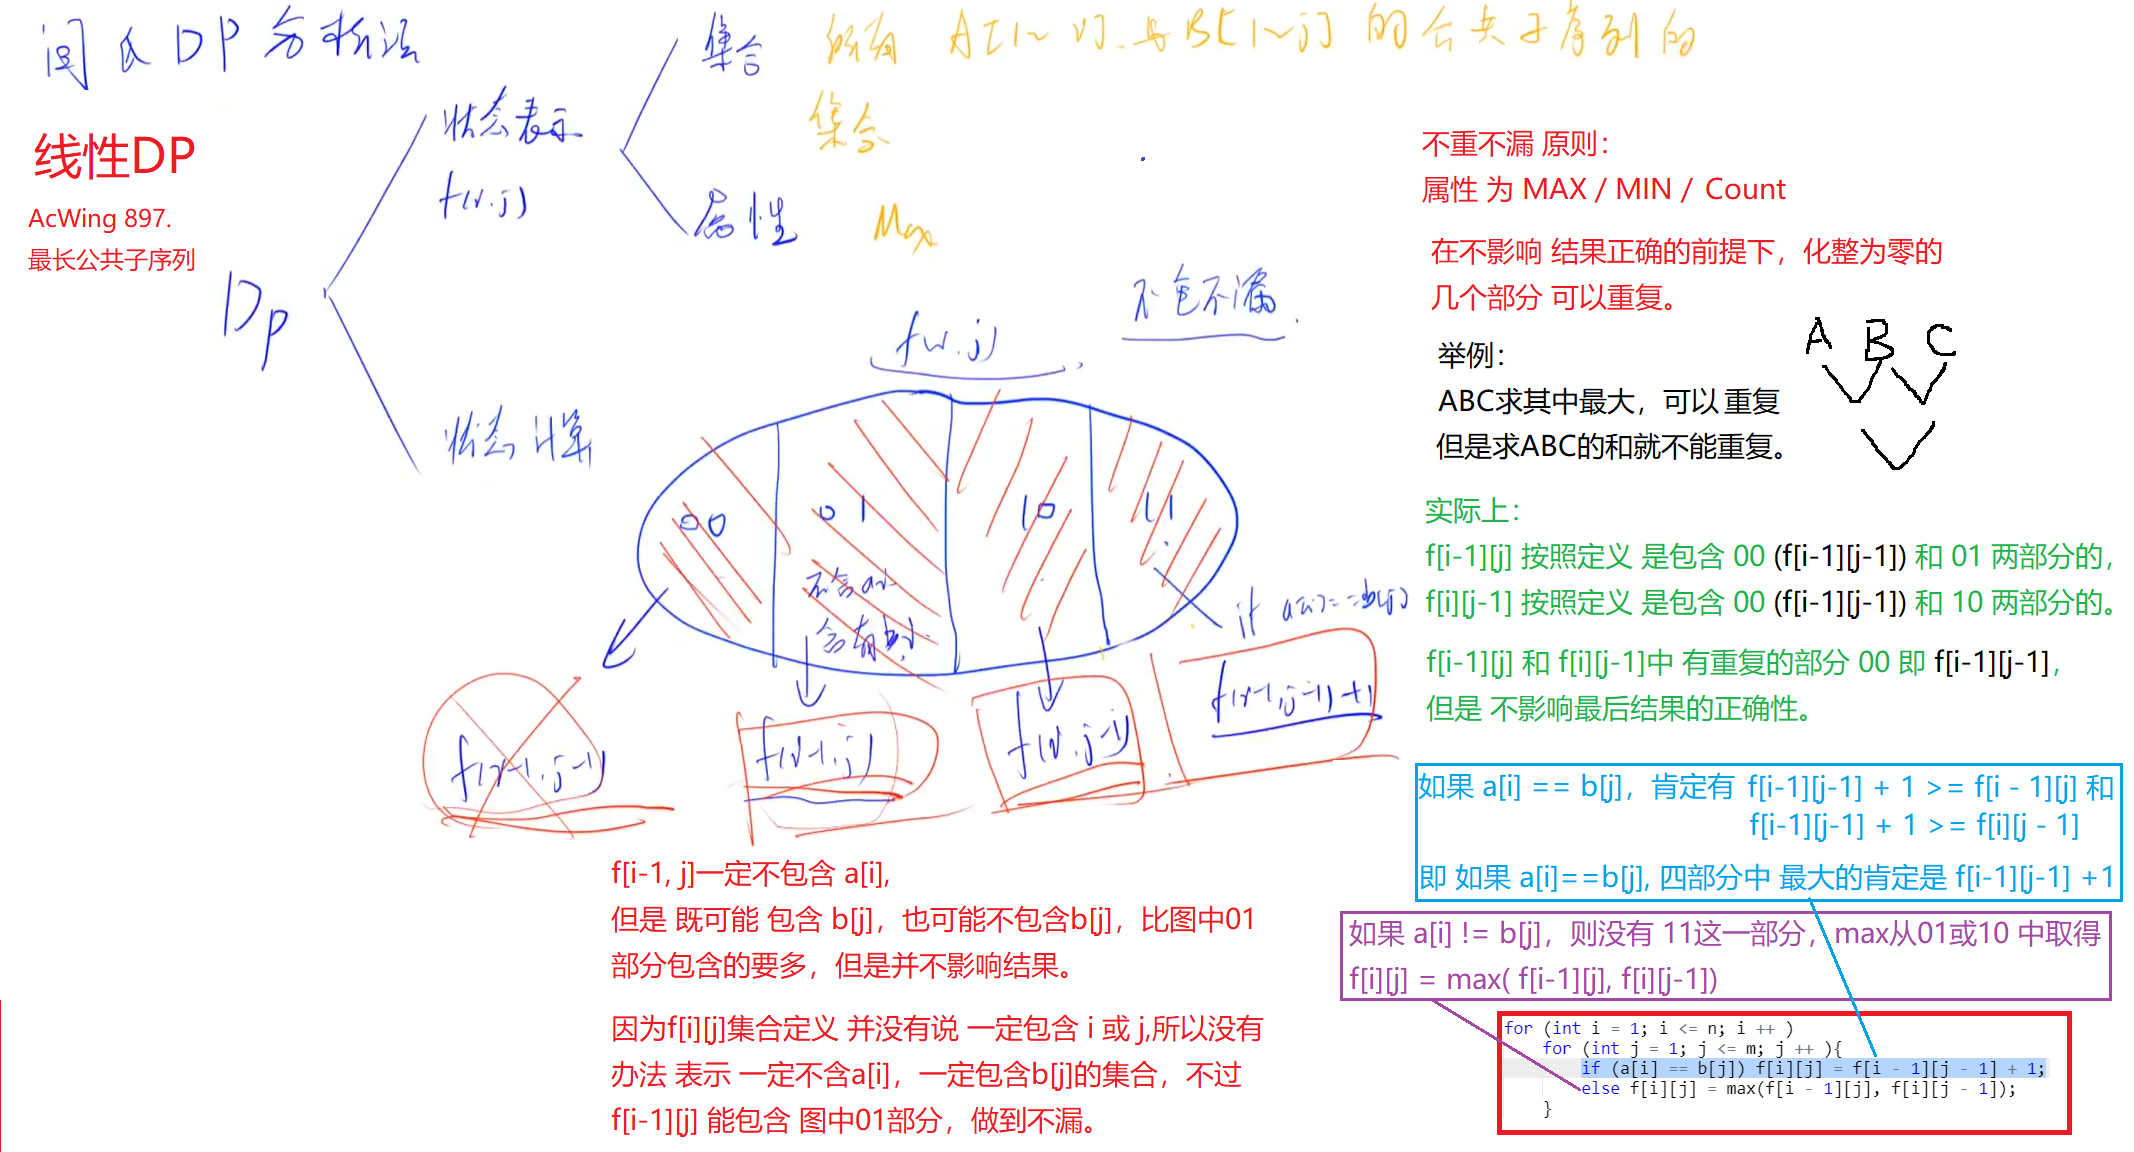 闫氏DP分析法
线性DP
AcWing 897.
最长公共子序列
DP
状态表示
f(i,j)
集合 所有A[1~i]与B[1~j]的公共子序列的
集合
属性 Max
状态计算
不重不漏
f(i,j)
00 01 10 11
不含a[i]
含有b[j]
if a[i]==b[j]
f(i-1,j-1)
f(i-1,j)
f(i,j-1)
f(i-1,j-1)+1
f[i-1, j]一定不包含 a[i],
但是 既可能 包含 b[j]，也可能不包含b[j]，比图中01
部分包含的要多，但是并不影响结果。
因为f[i][j]集合定义 并没有说 一定包含 i 或 j,所以没有
办法 表示 一定不含a[i]，一定包含b[j]的集合，不过
f[i-1][j] 能包含 图中01部分，做到不漏。
不重不漏 原则：
属性 为 MAX / MIN / Count
在不影响 结果正确的前提下，化整为零的
几个部分 可以重复。
举例：
ABC求其中最大，可以 重复
但是求ABC的和就不能重复。
A B C
实际上：
f[i-1][j] 按照定义 是包含 00 (f[i-1][j-1]) 和 01 两部分的，
f[i][j-1] 按照定义 是包含 00 (f[i-1][j-1]) 和 10 两部分的。
f[i-1][j] 和 f[i][j-1]中 有重复的部分 00 即 f[i-1][j-1]，
但是 不影响最后结果的正确性。
如果 a[i] == b[j]，肯定有 f[i-1][j-1] + 1 >= f[i - 1][j] 和
f[i-1][j-1] + 1 >= f[i][j - 1]
即 如果 a[i]==b[j], 四部分中 最大的肯定是 f[i-1][j-1] +1
如果 a[i] != b[j]，则没有 11这一部分，max从01或10 中取得
f[i][j] = max( f[i-1][j], f[i][j-1])
for (int i = 1; i <= n; i ++ )
for (int j = 1; j <= m; j ++ ){
if (a[i] == b[j]) f[i][j] = f[i - 1][j - 1] + 1;
else f[i][j] = max(f[i - 1][j], f[i][j - 1]);
}